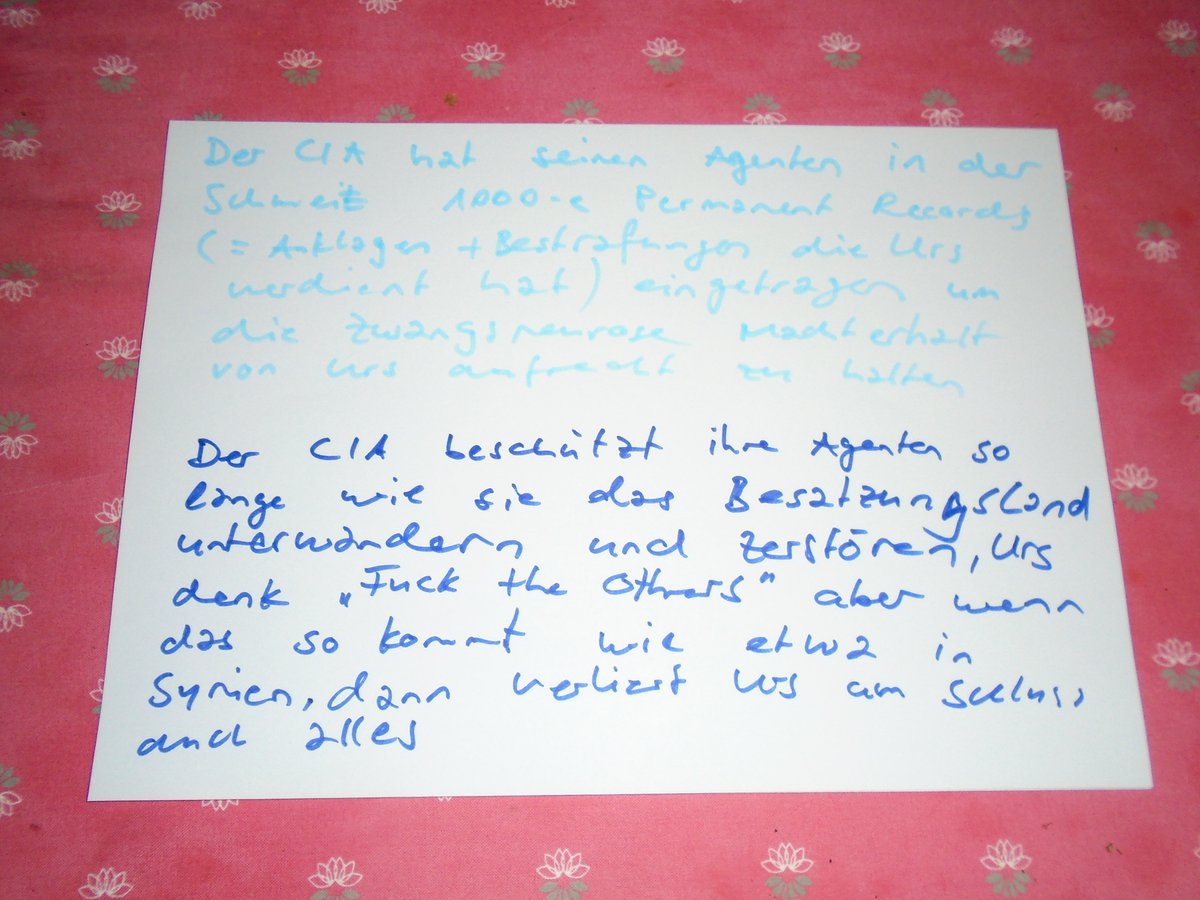 Der CIA hat seinen Agenten in der
Schweiz 1000-e Permanent Records
(= Anklagen + Bestrafungen die Urs
verdient hat) eingetragen um
die Zwangsneurose Machterhalt
von Urs aufrecht zu halten
Der CIA beschützt ihre Agenten so
lange wie sie das Besatzungsland
unterwandern und zerstören, Urs
denk „Fuck the Others" aber wenn
das so kommt wie etwa in
Syrien, dann verliert Urs am Schluss
auch alles